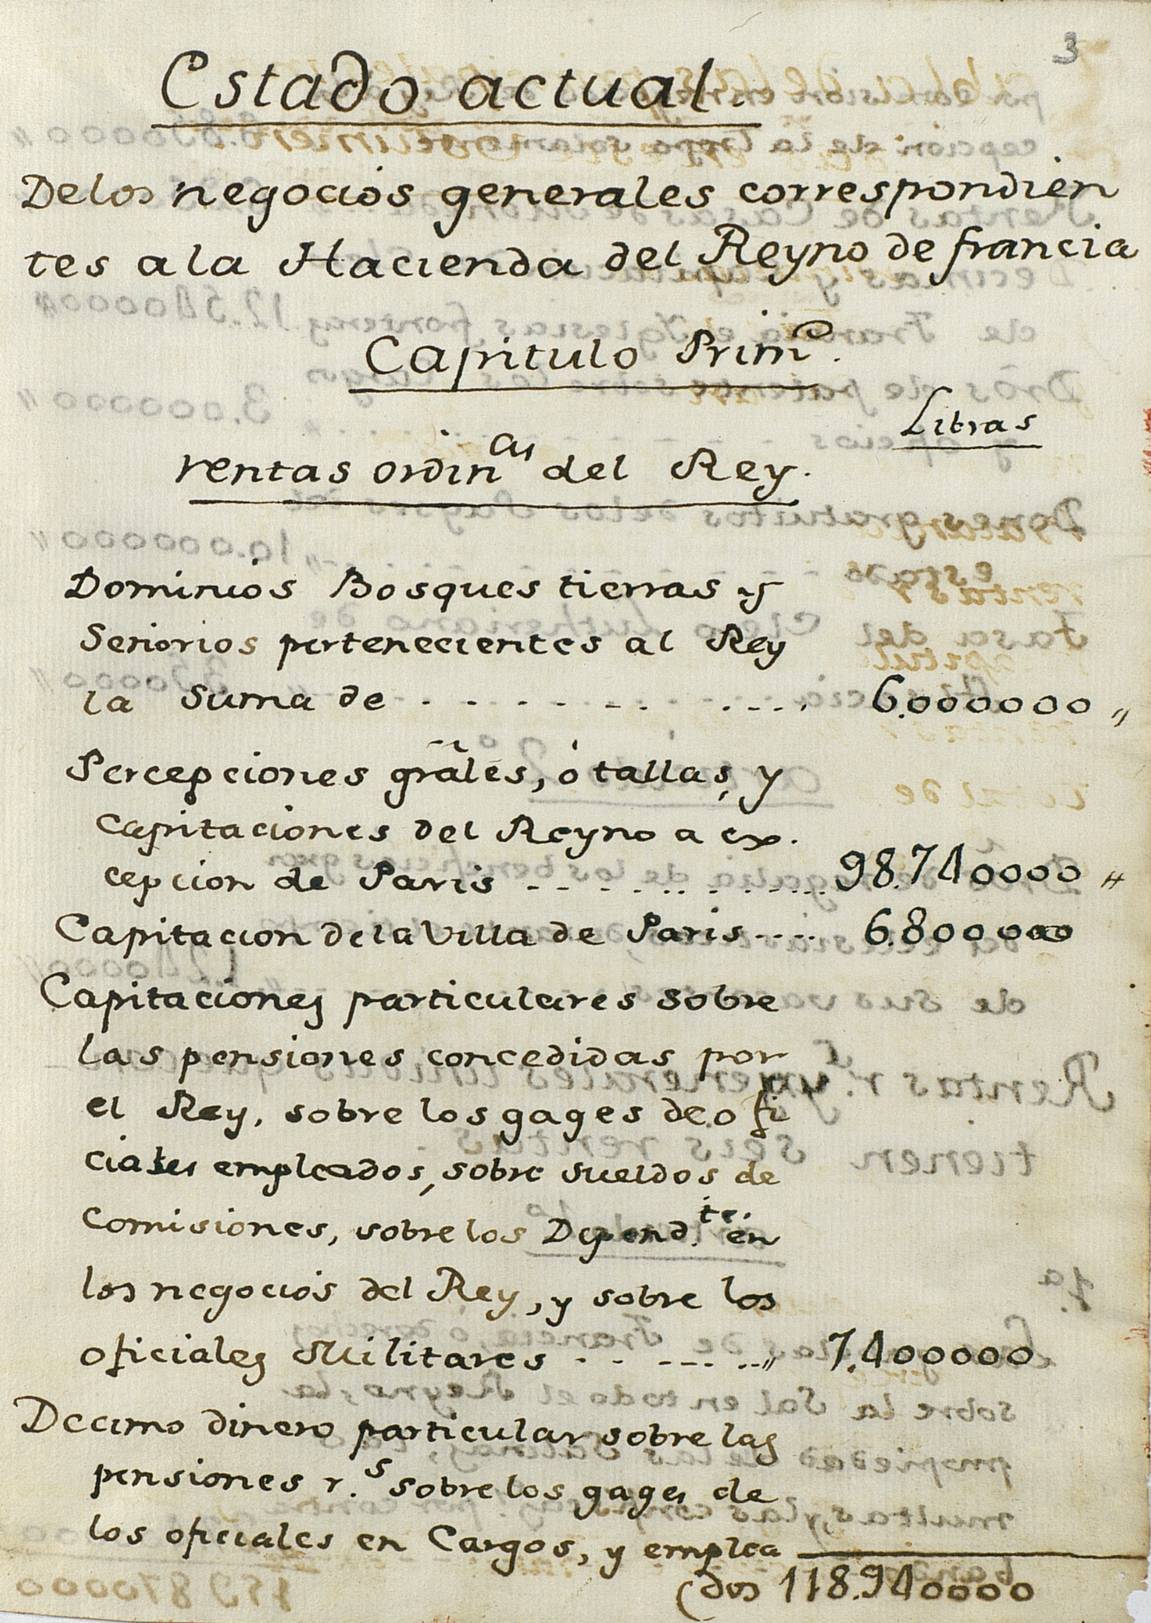 3
Estado actual.
Delos negocios generales correspondien
tes a la Hacienda del Reyno de francia
Capitulo Primo.
Libras
rentas ordinas del Rey.
Dominios Bosques tierras y
Señorios pertenecientes al Rey
la suma de . . . . . . . . . . . 6.000000 „
Percepciones grāles, ó tallas, y
capitaciones del Reyno a ex.
cepcion de Paris - - . . . . . . . . . 98.740000 „
Capitacion dela Villa de Paris - . . . 6.800000
Capitaciones particulares sobre
las pensiones concedidas por
el Rey, sobre los gages de ofi
ciales empleados, sobre sueldos de
Comisiones, sobre los Depend.tes. en
los negocios del Rey, y sobre los
oficiales Militares . . . . . . „ 7.400000
Decimo dinero particular sobre las
pensiones r.s sobre los gages de
los oficiales en Cargos, y emplea
(dos 118.940000